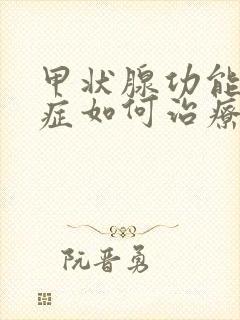 甲状腺功能
症如何治療
阮晋勇